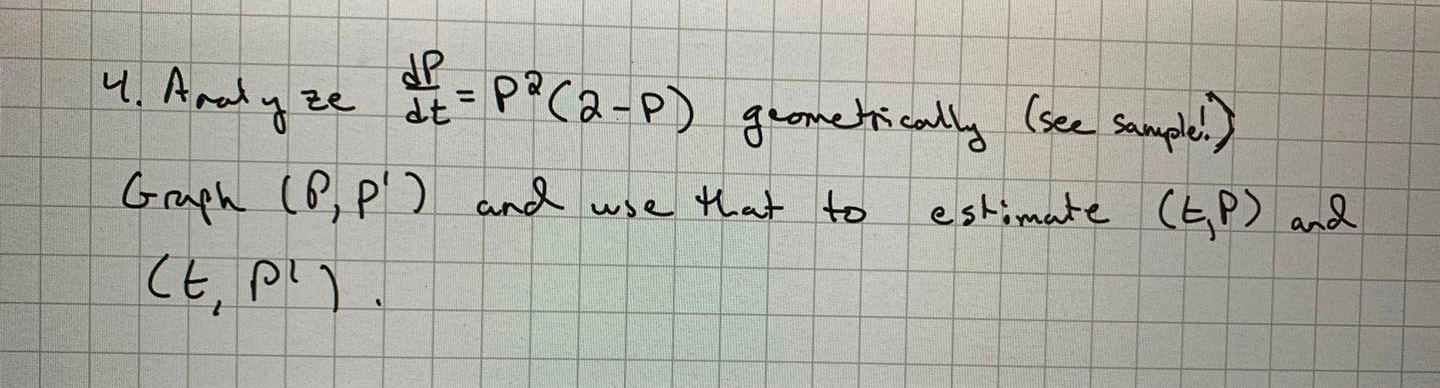 4. Analyze dP/dt = P²(2-P) geometrically (see sample!)
Graph (P, P') and use that to estimate (t, P) and
(t, P').